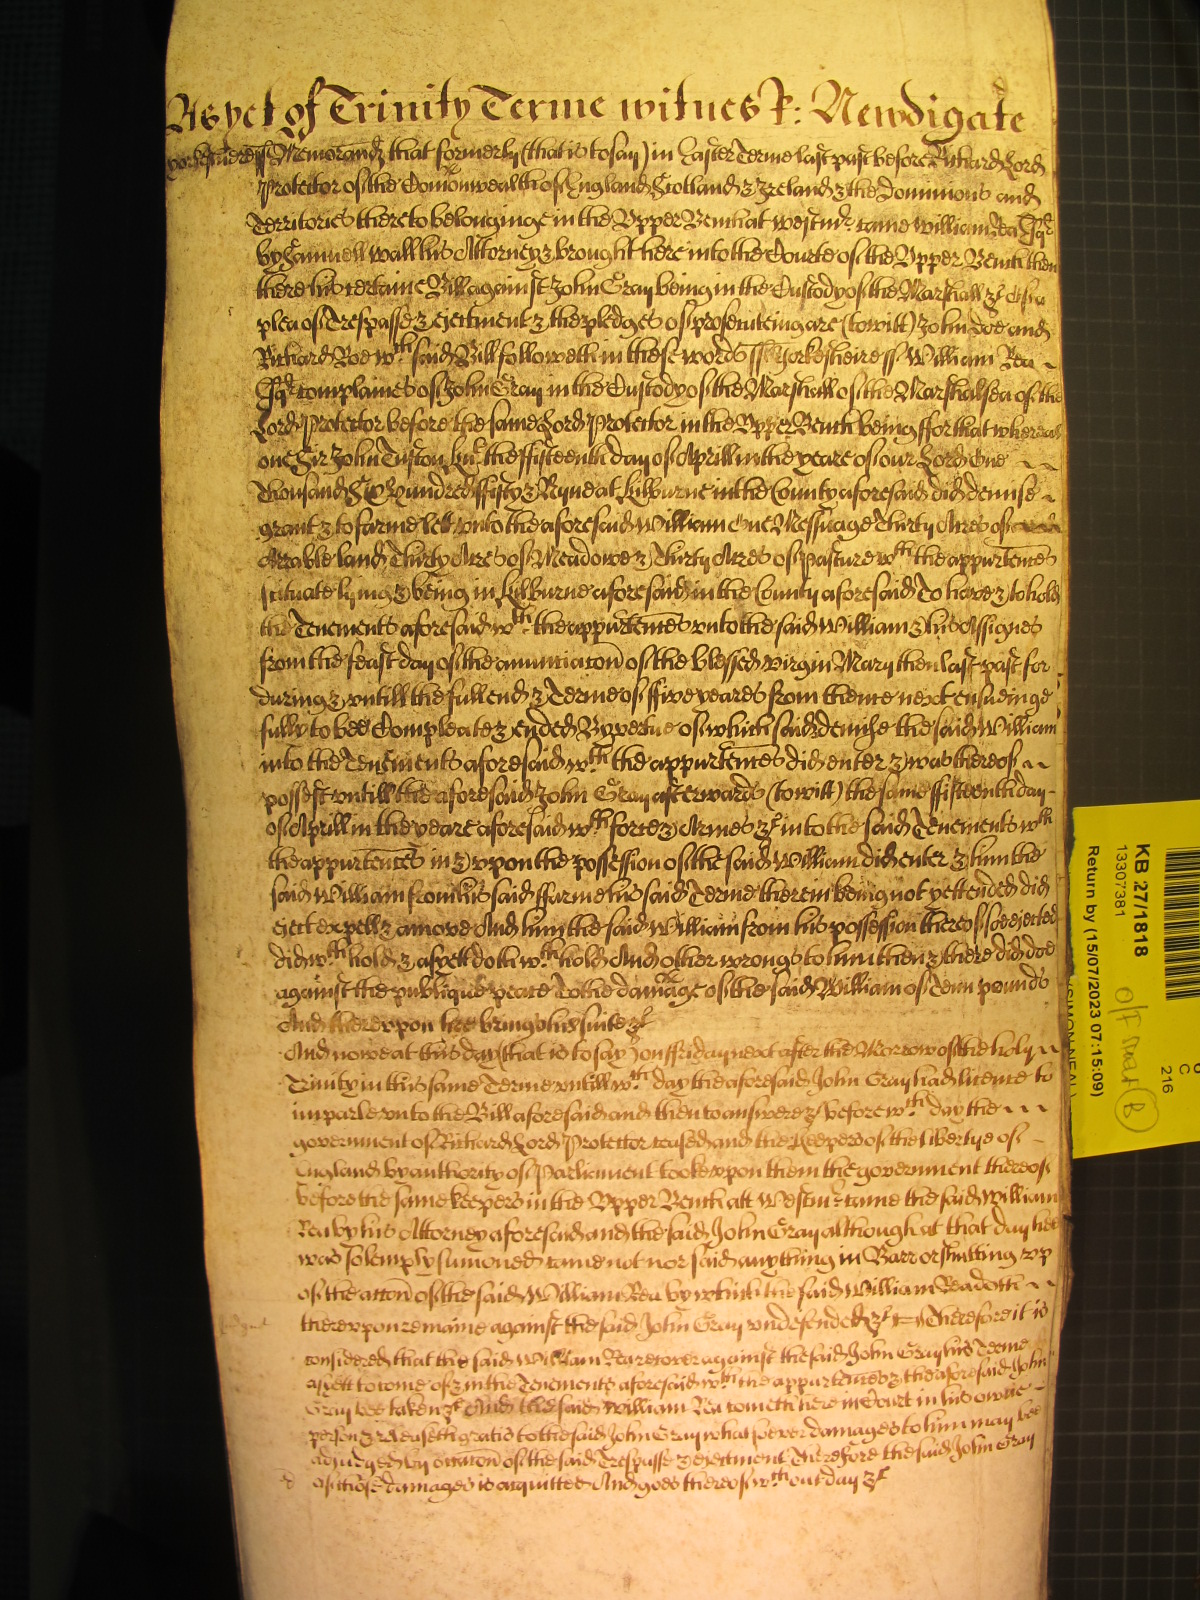 As yet of Trinity Terme witnes R: Newdigate
Yorkesheire ss Memorand that formerly (that is to say) in Easter Terme last past before Richard Lord
Protector of the Comonwealth of England Scotland & Ireland & the Dominions and
Territories thereto belonginge in the Upper Bench at Westmr came William Rea Esqr
by Samuell Wall his Attorney & brought here into the Courte of the Upper Bench then
there his certaine Bill against John Gray being in the Custody of the Marshall &c of a
plea of Trespasse & ejectment & the pledges of prosecuteing are (to witt) John Doe and
Richard Roe wch said Bill followeth in these words ss Yorkesheire ss William Rea
Esqr complaines of John Gray in the Custody of the Marshall of the Marshallsea of the
Lord Protector before the same Lord Protector in the Upper Bench being ffor that whereas
one Sir John Tufton the ffifteenth day of Aprill in the yeare of our Lord One
Thousand Six Hundred ffifty & Nyne at Kilburne in the County aforesaid did demise
grant & to farme lett unto the aforesaid William One Messuage Thirty Acres of
Arrable land Thirty Acres of Meadowe & Thirty Acres of pasture wth the appurtences
scituate lying & being in Kilburne aforesaid in the County aforesaid To have & to hold
the Tenements aforesaid wth the appurtences unto the said William & his Assignes
from the feast day of the annunciacon of the blessed virgin Mary then last past for
during & untill the full end & Terme of ffive yeares from thence next ensueinge
fully to bee Compleate & ended By vertue of which said demise the said William
into the Tenements aforesaid wth the appurtences did enter & was thereof
possest untill the aforesaid John Gray afterwards (to witt) the same ffifteenth day
of Aprill in the yeare aforesaid wth force & Armes &c into the said Tenements wth
the appurtences in & upon the possession of the said William did enter & him the
said William from his said ffarme his said Terme therein being not yett ended did
eject expell & amove And him the said William from his possession thereof soe ejected
did wthhold & as yett doth wthhold And other wrongs to him then & there did doe
against the publique peace To the damage of the said William of Tenn pounds
And thereupon hee brings his suite &c
And nowe at this day (that is to say) on ffriday next after the Morrow of the holy
Trinity in this same Terme untill wch day the aforesaid John Gray had licence to
imparle unto the Bill aforesaid and then to answere &c before wch day the
government of Richard Lord Protector ceased and the Keepers of the libertye of
England by authority of Parliament tooke upon them the government thereof
before the same keepers in the Upper Bench att Westmr came the said William
Rea by his Attorney aforesaid and the said John Gray although at that day hee
was solemply sumoned came not nor said anything in Barr or shutting up
of the accon of the said William Rea by which the said William Rea doth
thereupon remaine against the said John Gray undefended &c Therefore it is
considered that the said William Rea recover against the said John Gray his Terme
as yett to come of & in the Tenements aforesaid wth the appurtences & the aforesaid John
Gray bee taken &c And the said William Rea cometh here in Court in his owne
person & releaseth gratis to the said John Gray whatsoever damages to him may bee
adjudged by occacon of the said Trespasse & ejectment Therefore the said John Gray
of those damages is acquitted And goes thereof wthout day &c
KB 27/1818
13307381
Return by (15/07/2023 07:15:09)
C
216
B